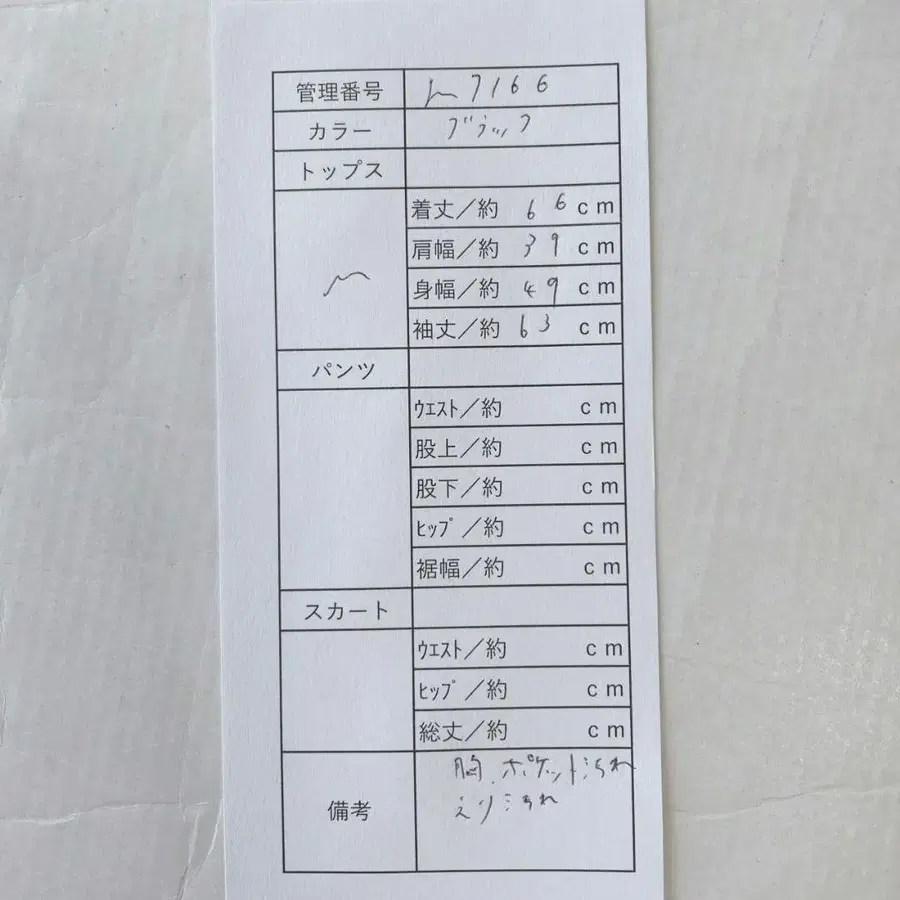 管理番号 m7166
カラー ブラック
トップス
着丈／約 66 cm
肩幅／約 39 cm
身幅／約 49 cm
袖丈／約 63 cm
パンツ
ｳｴｽﾄ／約 cm
股上／約 cm
股下／約 cm
ﾋｯﾌﾟ／約 cm
裾幅／約 cm
スカート
ｳｴｽﾄ／約 cm
ﾋｯﾌﾟ／約 cm
総丈／約 cm
備考
胸、ポケット汚れ
えり汚れ